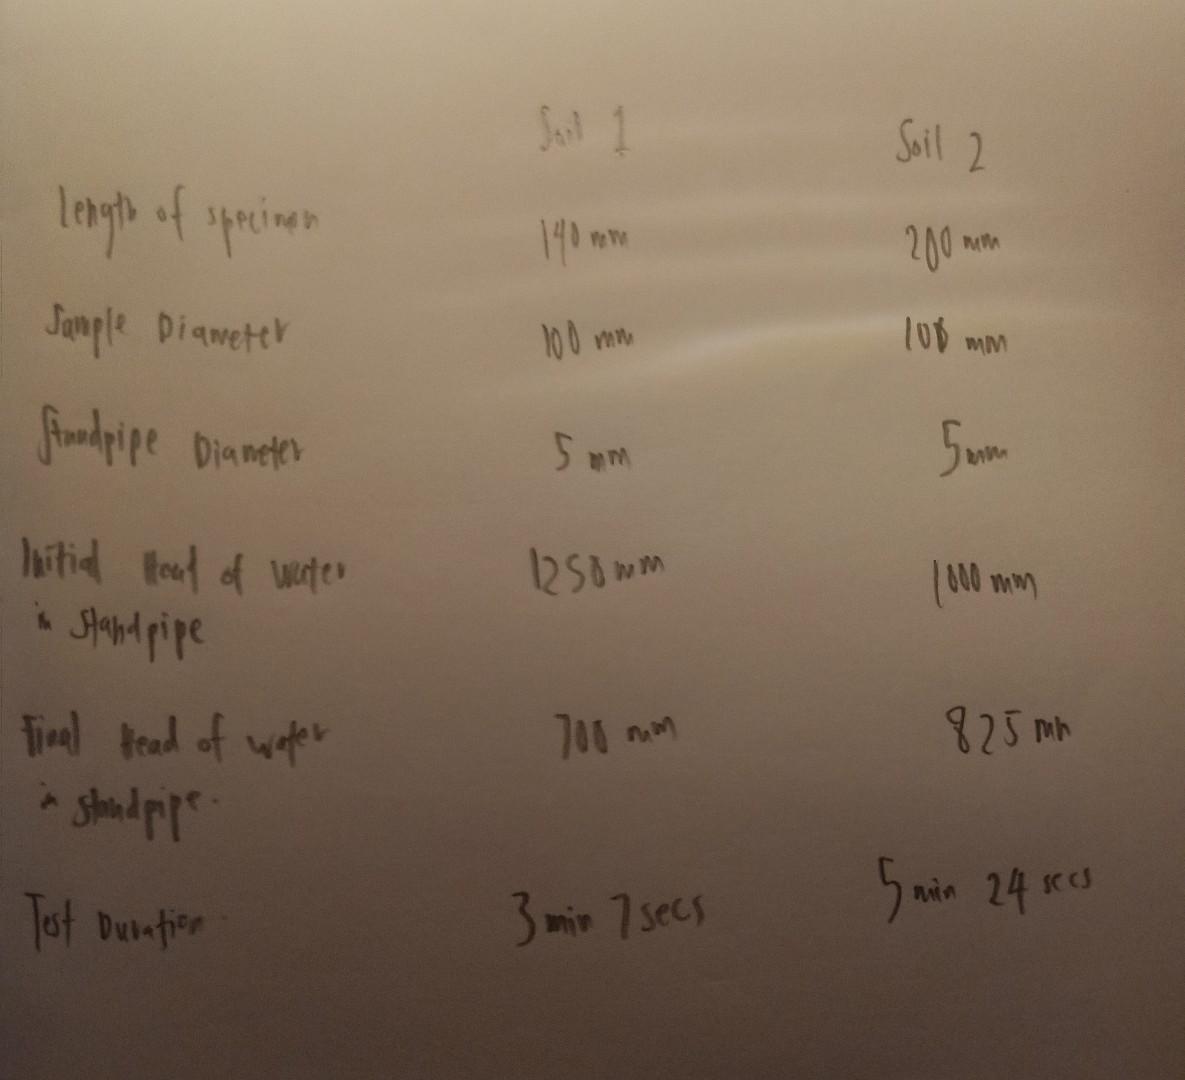 Soil 1 Soil 2
Length of specimen 140 mm 200 mm
Sample Diameter 100 mm 100 mm
Standpipe Diameter 5 mm 5 mm
Initial Head of water 1250 mm 1000 mm
in standpipe
Final Head of water 700 mm 825 mm
in standpipe.
Test Duration 3 min 7 secs 5 min 24 secs